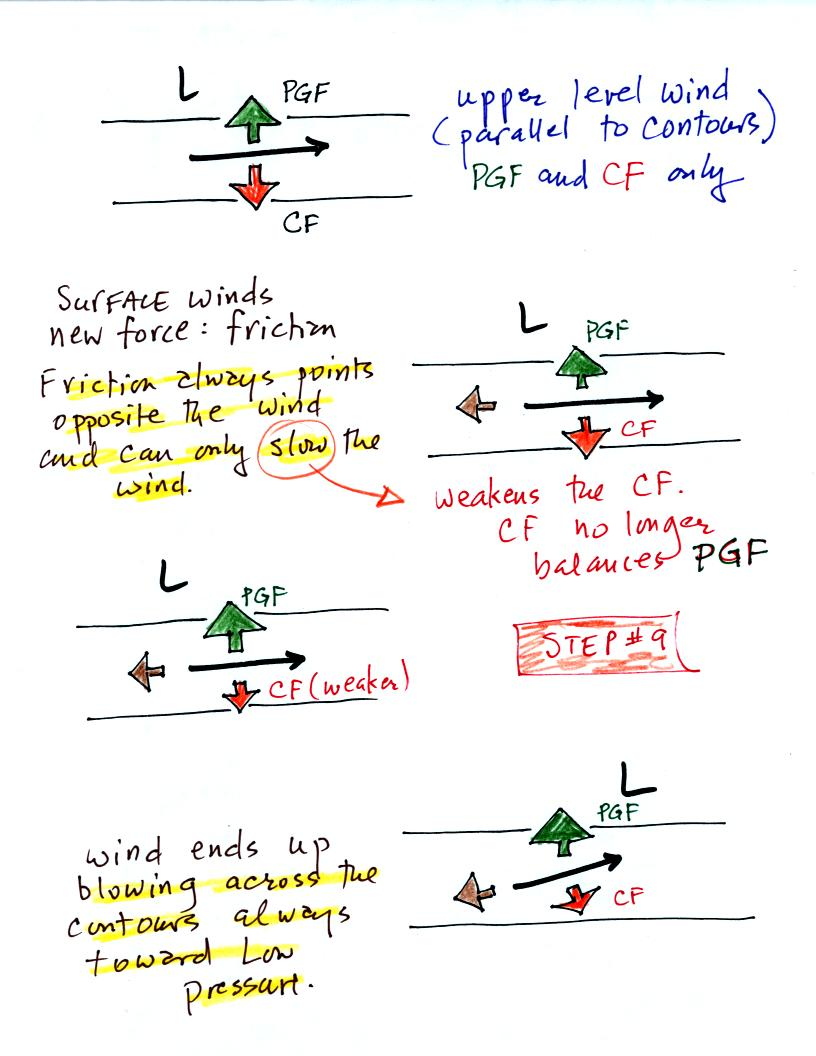 L
PGF
CF
upper level wind
(parallel to contours)
PGF and CF only
SurFACE winds
new force: friction
Friction always points
opposite the wind
and can only slow the
wind.
L
PGF
CF
weakens the CF.
CF no longer
balances PGF
L
PGF
CF (weaker)
STEP #9
L
PGF
CF
wind ends up
blowing across the
contours always
toward Low
pressure.